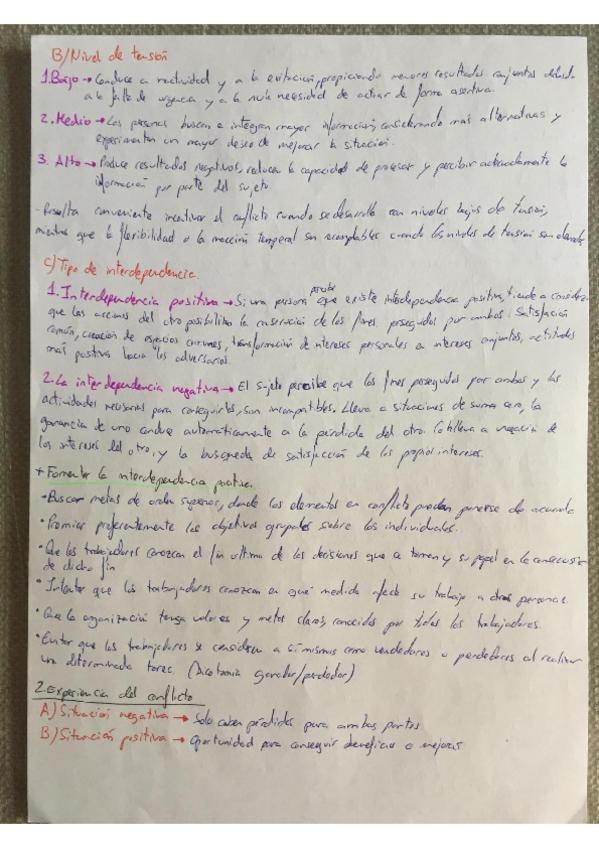 B/ Nivel de tensión
1. Bajo → Conduce a inactividad y a la evitación, propiciando menores resultados conjuntos debido
a la falta de urgencia y a la nula necesidad de actuar de forma asertiva.
2. Medio → Las personas buscan e integran mayor información, considerando más alternativas y
experimentan un mayor deseo de mejorar la situación.
3. Alto → Produce resultados negativos, reducen la capacidad de procesar y percibir adecuadamente la
información por parte del sujeto.
- Resulta conveniente incentivar el conflicto cuando se desarrolla con niveles bajos de tensión,
mientras que la flexibilidad o la inacción temporal son aceptables cuando los niveles de tensión son elevados.
C/ Tipo de interdependencia.
1. Interdependencia positiva → Si una persona percibe que existe interdependencia positiva, tiende a considerar
que las acciones del otro posibilitan la consecución de los fines perseguidos por ambos. Satisfacción
común, creación de espacios comunes, transformación de intereses personales a intereses conjuntos, actitudes
más positivas hacia los adversarios.
2. La interdependencia negativa → El sujeto percibe que los fines perseguidos por ambos y las
actividades necesarias para conseguirlos, son incompatibles. Lleva a situaciones de suma cero, la
ganancia de uno conduce automáticamente a la pérdida del otro. Conlleva a negación de
los intereses del otro, y la búsqueda de satisfacción de los propios intereses.
+ Fomentar la interdependencia positiva.
• Buscar metas de orden superior, donde los elementos en conflicto puedan ponerse de acuerdo
• Premiar preferentemente los objetivos grupales sobre los individuales.
• Que los trabajadores conozcan el fin último de las decisiones que se toman y su papel en la consecución
de dicho fin
• Intentar que los trabajadores conozcan en qué medida afecta su trabajo a otras personas.
• Que la organización tenga valores y metas claras, conocidas por todos los trabajadores.
• Evitar que los trabajadores se consideren a sí mismos como vencedores o perdedores al realizar
una determinada tarea. (Dicotomía ganador/perdedor)
2. Experiencia del conflicto
A) Situación negativa → Solo caben pérdidas para ambas partes
B) Situación positiva → Oportunidad para conseguir beneficios o mejoras